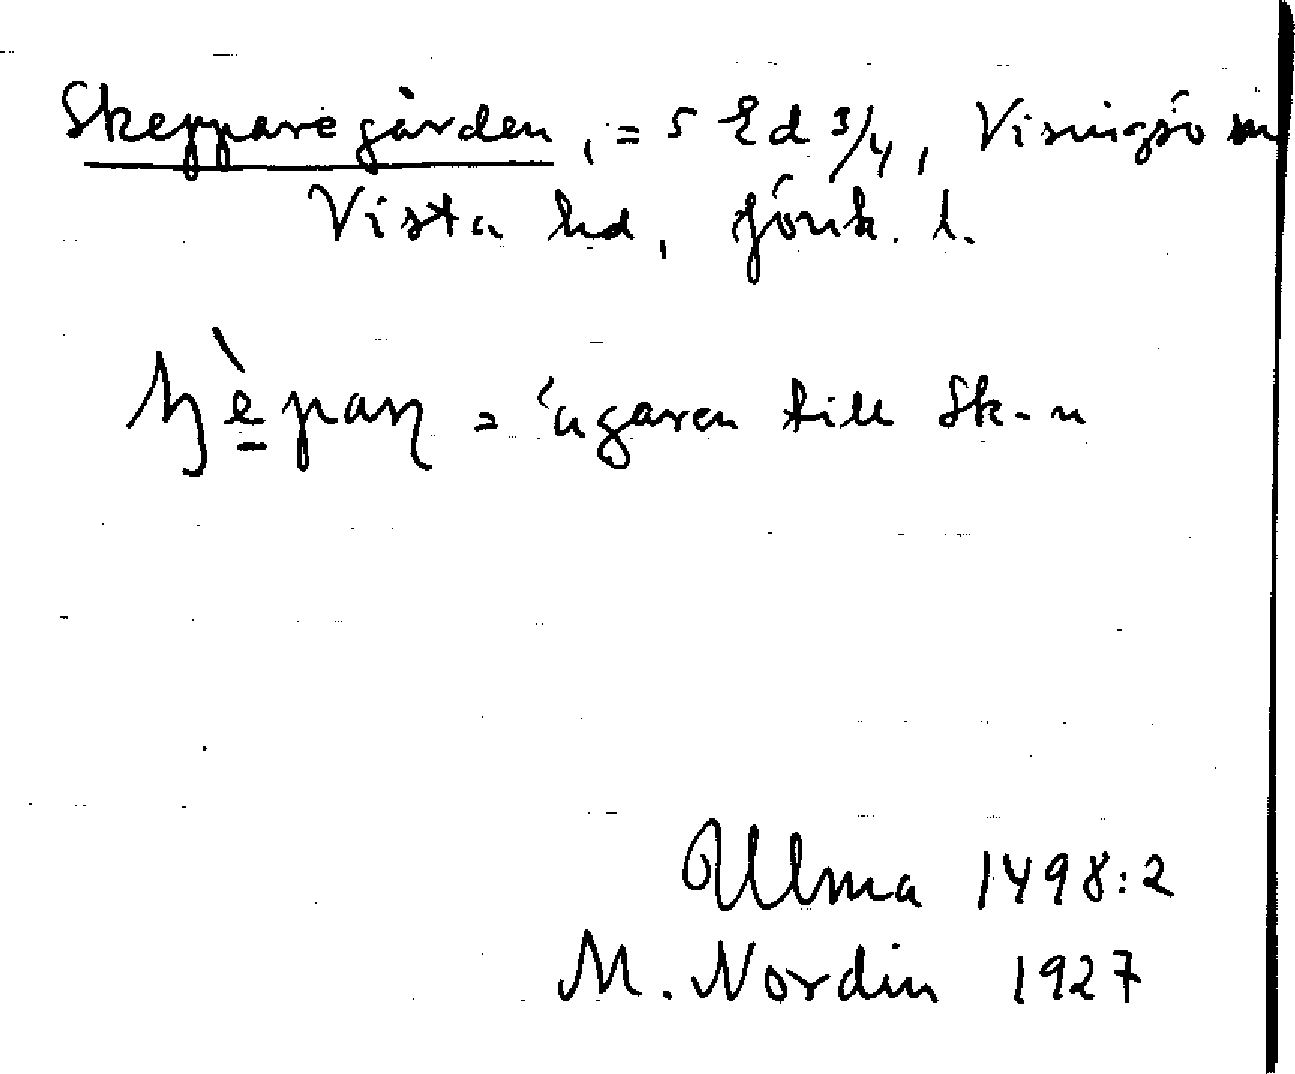 Skepparegården, = 5 Ed 3/4, Visingsö sn
Vista hd, Jönk. l.
= ägaren till Sk-n
Ulma 1498:2
M. Nordin 1927